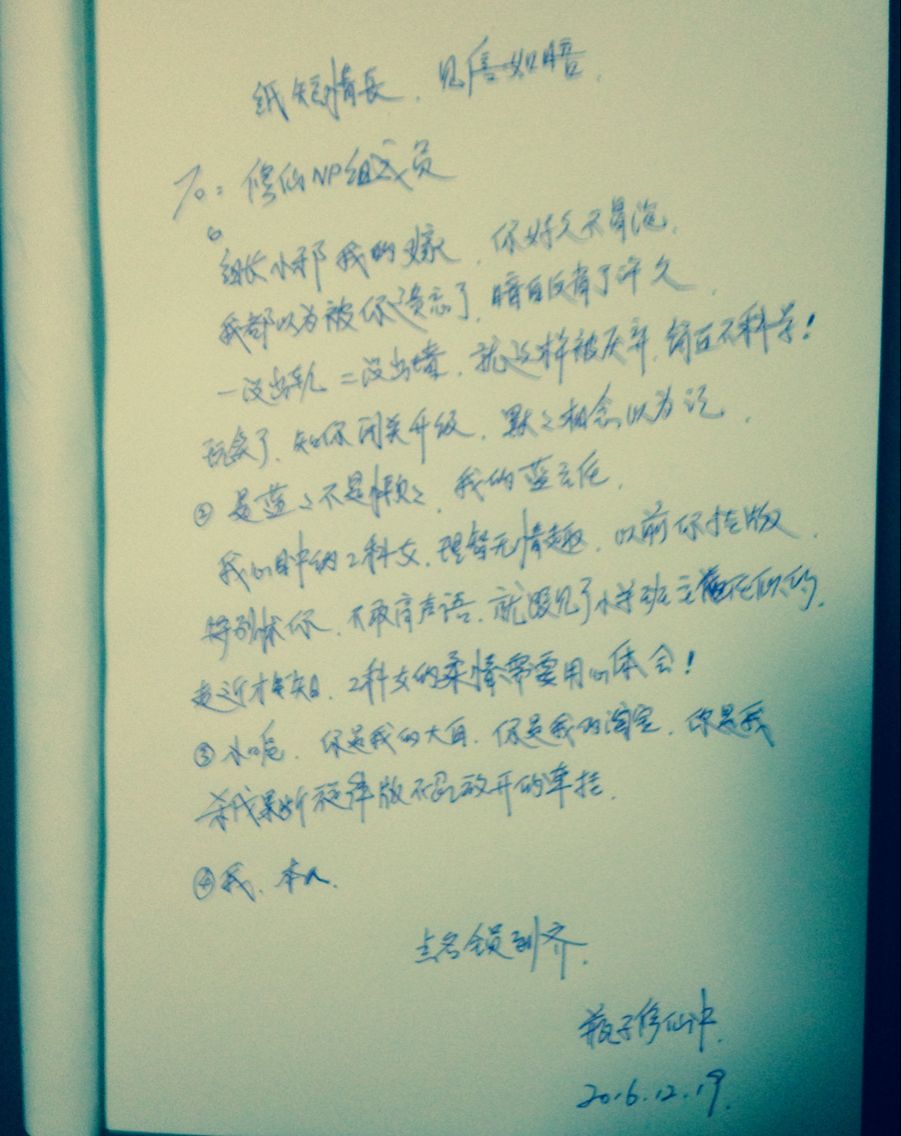 纸短情长，见信如晤，
To：修仙NP组成员
组长小邪 我的嫁，你好久不冒泡，
我都以为被你遗忘了，暗自反省了许久，
一没出轨 二没出墙，就这样被厌弃，简直不科学！
玩笑了，知你闭关升级，默默相念以为记，
② 是蓝蓝不是懒懒，我的蓝立区，
我们眼中的工科女，理智无情趣，以前你控版
特别怵你，不敢高声语，就跟见了小学班主任似的，
走近才知，工科女的柔情需要用心体会！
③ 小呢，你是我的大白，你是我的淘宝，你是我
杀伐果断 版不能放开的牵挂，
④ 我，本人，
点名全员到齐，
瓶子修仙中，
2016.12.19.